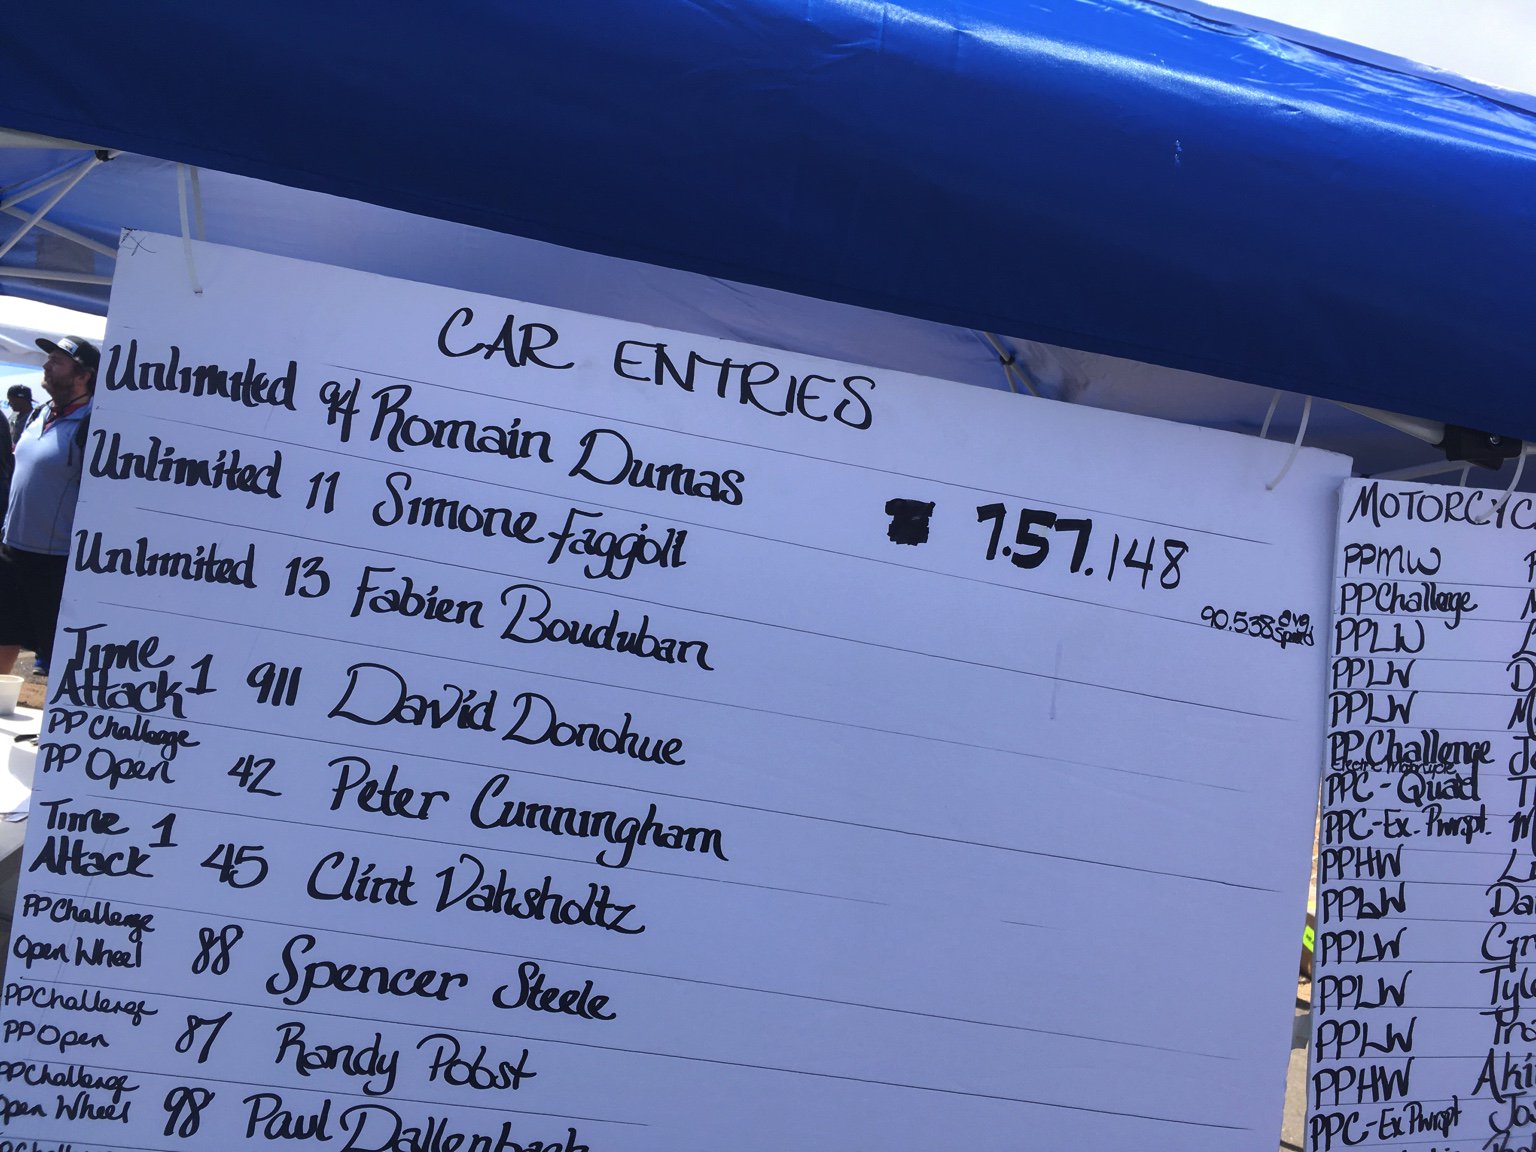 CAR ENTRIES
Unlimited 94 Romain Dumas 7.57.148
90.538 avg speed
Unlimited 11 Simone Faggioli
Unlimited 13 Fabien Bouduban
Time Attack 1 911 David Donohue
PP Challenge PP Open 42 Peter Cunningham
Time Attack 1 45 Clint Vahsholtz
PP Challenge Open Wheel 88 Spencer Steele
PP Challenge PP Open 87 Randy Pobst
PP Challenge Open Wheel 98 Paul Dallenbach
MOTORCYC
PPMW
PP Challenge
PPLW
PPLW
PPLW
PP Challenge
Electric Motorcycle
PPC - Quad
PPC - Ex. Pwrspt.
PPHW
PPLW Da
PPLW
PPLW Tyle
PPLW Tra
PPHW Aki
PPC - Ex Pwrspt Jos